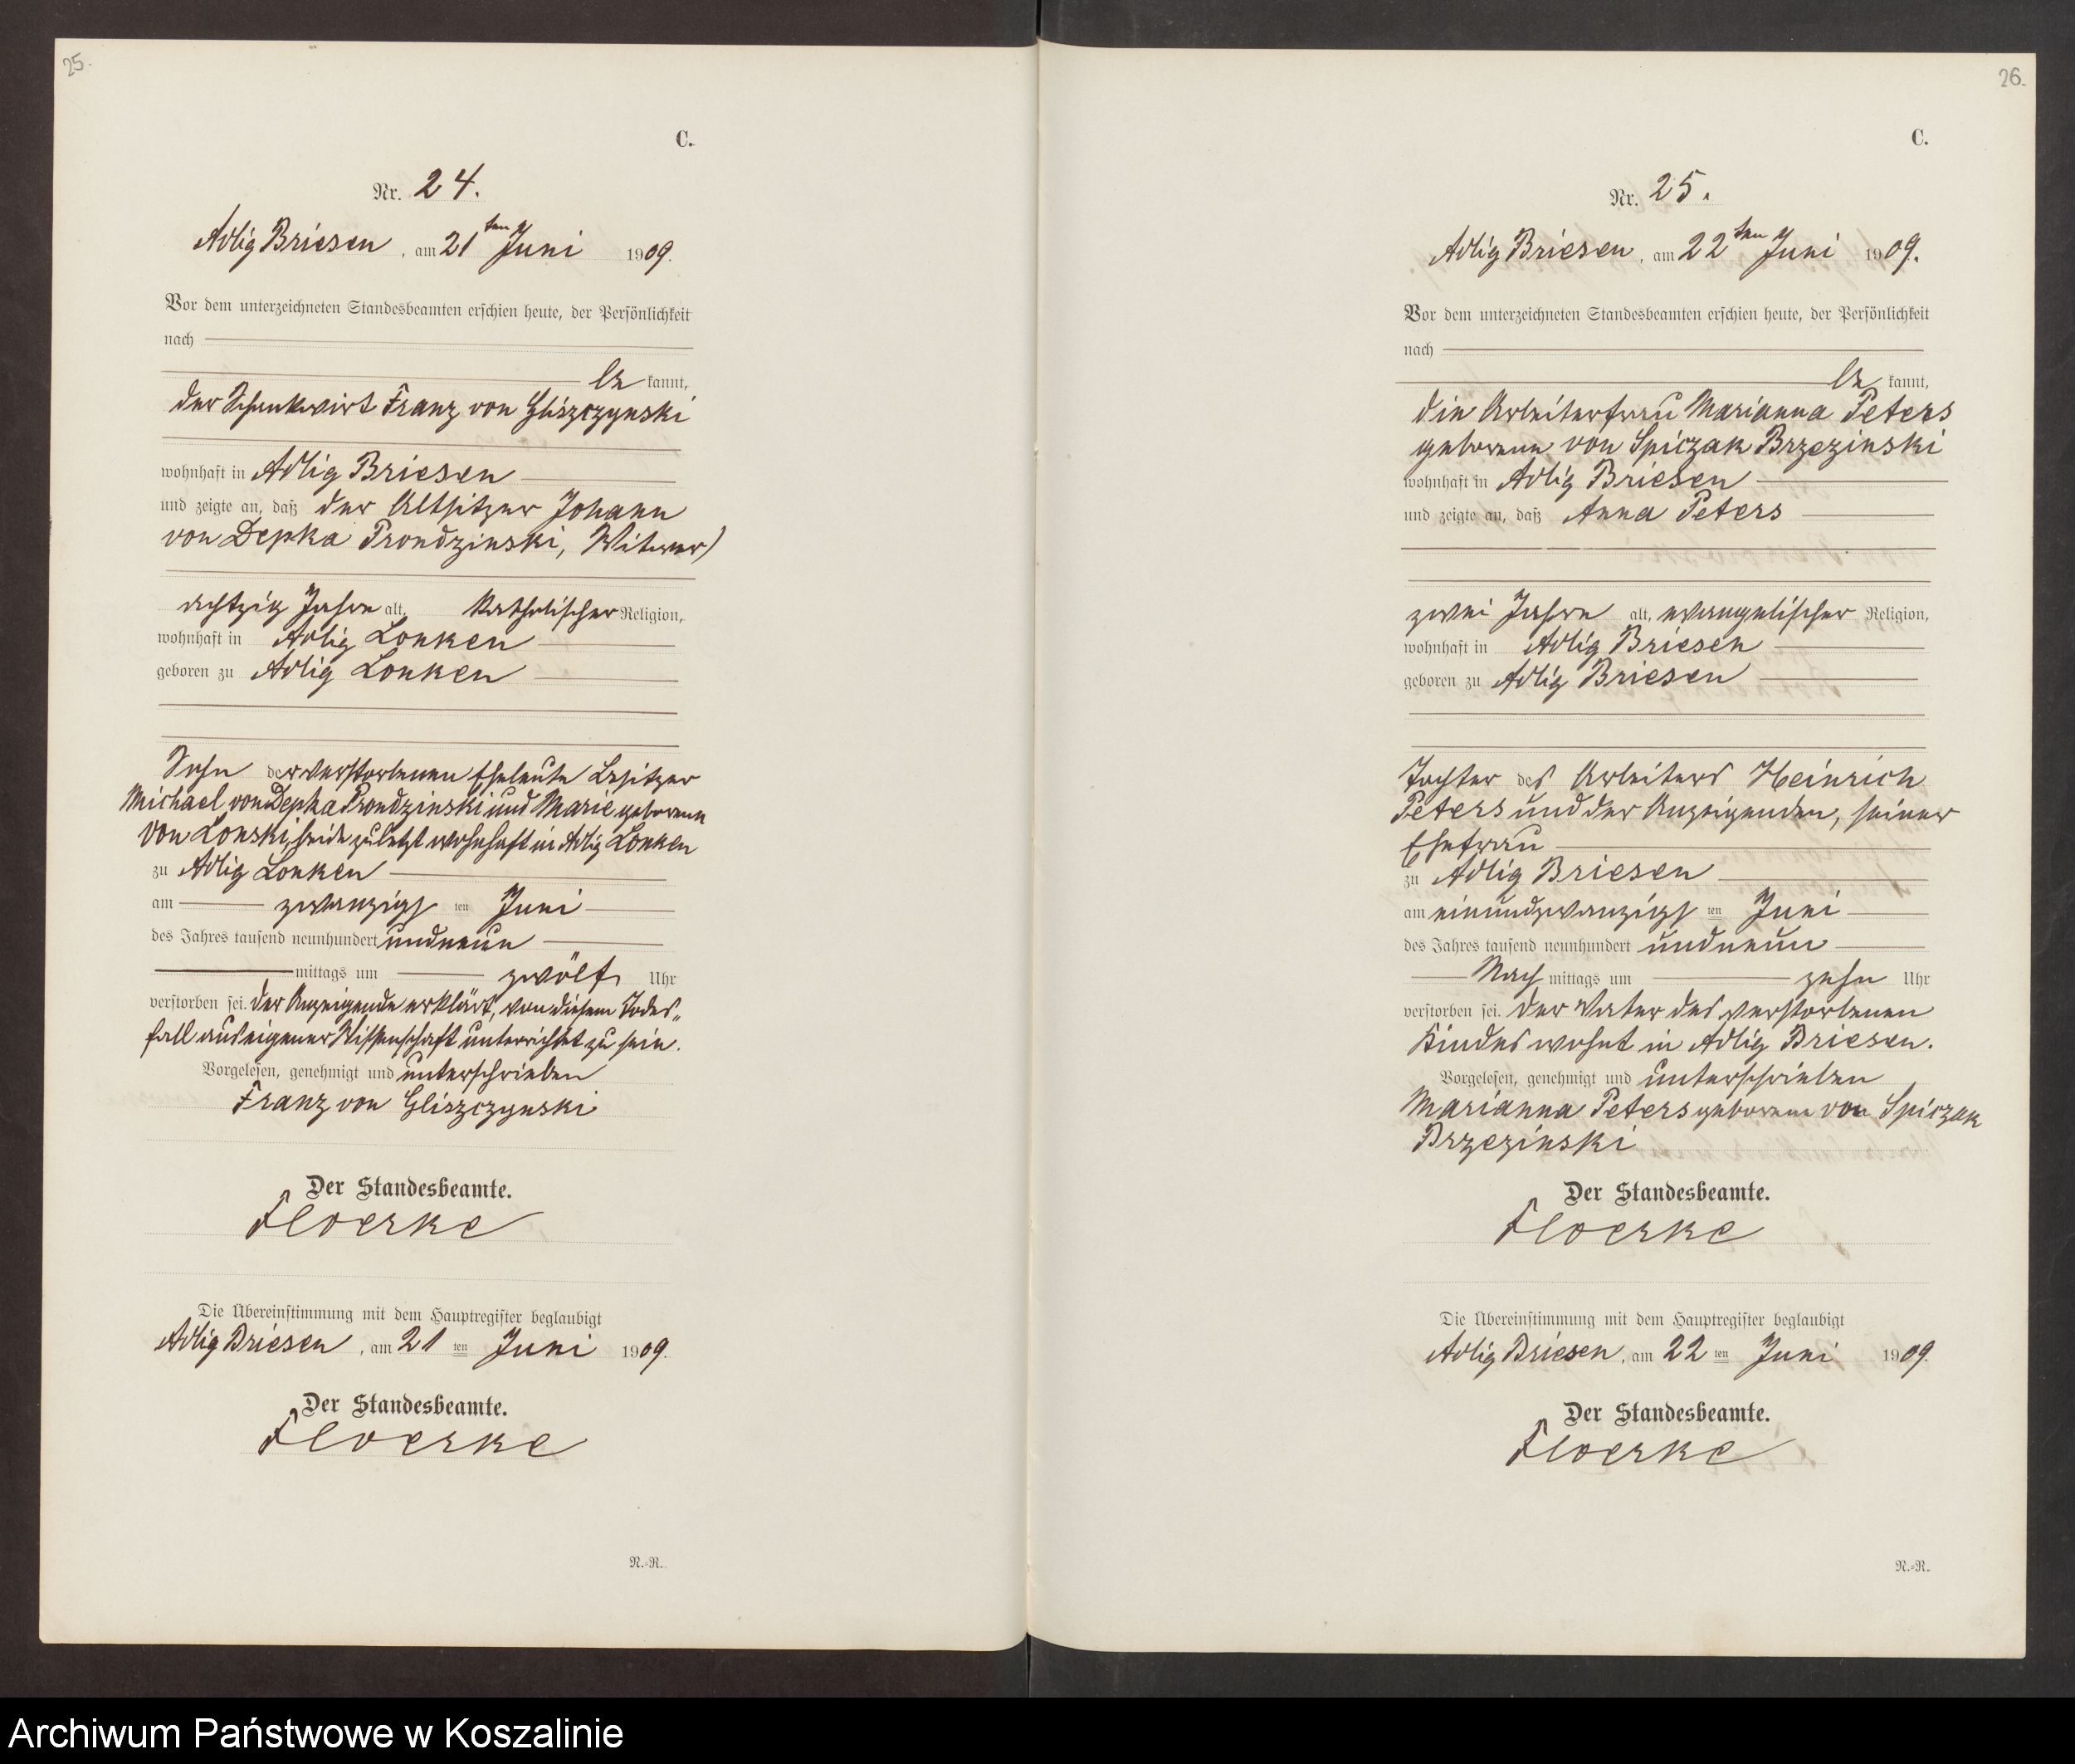 25.
C.
Nr. 24.
Adlig Briesen, am 21ten Juni 1909.
Vor dem unterzeichneten Standesbeamten erschien heute, der Persönlichkeit
nach
be kannt,
der Schankwirt Franz von Gliszczynski
wohnhaft in Adlig Briesen
und zeigte an, daß der Altsitzer Johann
von Depka Prondzinski, Witwer)
achtzig Jahre alt, katholischer Religion,
wohnhaft in Adlig Lonken
geboren zu Adlig Lonken
Sohn der verstorbenen Eheleute Besitzer
Michael von Depka Prondzinski und Marie geborene
von Lonski, beide zuletzt wohnhaft in Adlig Lonken
zu Adlig Lonken
am zwanzigs ten Juni
des Jahres tausend neunhundert undneun
mittags um zwölf Uhr
verstorben sei. Der Anzeigende erklärt, von diesem Todes„
fall aus eigener Wissenschaft unterrichtet zu sein.
Vorgelesen, genehmigt und unterschrieben
Franz von Gliszczynski
Der Standesbeamte.
Floerke
Die Übereinstimmung mit dem Hauptregister beglaubigt
Adlig Briesen, am 21 ten Juni 1909.
Der Standesbeamte.
Floerke
N.-R.
26.
C.
Nr. 25.
Adlig Briesen, am 22ten Juni 1909.
Vor dem unterzeichneten Standesbeamten erschien heute, der Persönlichkeit
nach
be kannt,
die Arbeiterfrau Marianna Peters
geborene von Spiczak Brzezinski
wohnhaft in Adlig Briesen
und zeigte an, daß Anna Peters
zwei Jahre alt, evangelischer Religion,
wohnhaft in Adlig Briesen
geboren zu Adlig Briesen
Tochter des Arbeiters Heinrich
Peters und der Anzeigenden, seiner
Ehefrau
zu Adlig Briesen
am einundzwanzigs ten Juni
des Jahres tausend neunhundert undneun
Nach mittags um zehn Uhr
verstorben sei. Der Vater des verstorbenen
Kindes wohnt in Adlig Briesen.
Vorgelesen, genehmigt und unterschrieben
Marianna Peters geborene von Spiczak
Brzezinski
Der Standesbeamte.
Floerke
Die Übereinstimmung mit dem Hauptregister beglaubigt
Adlig Briesen, am 22 ten Juni 1909.
Der Standesbeamte.
Floerke
N.-R.
Archiwum Państwowe w Koszalinie